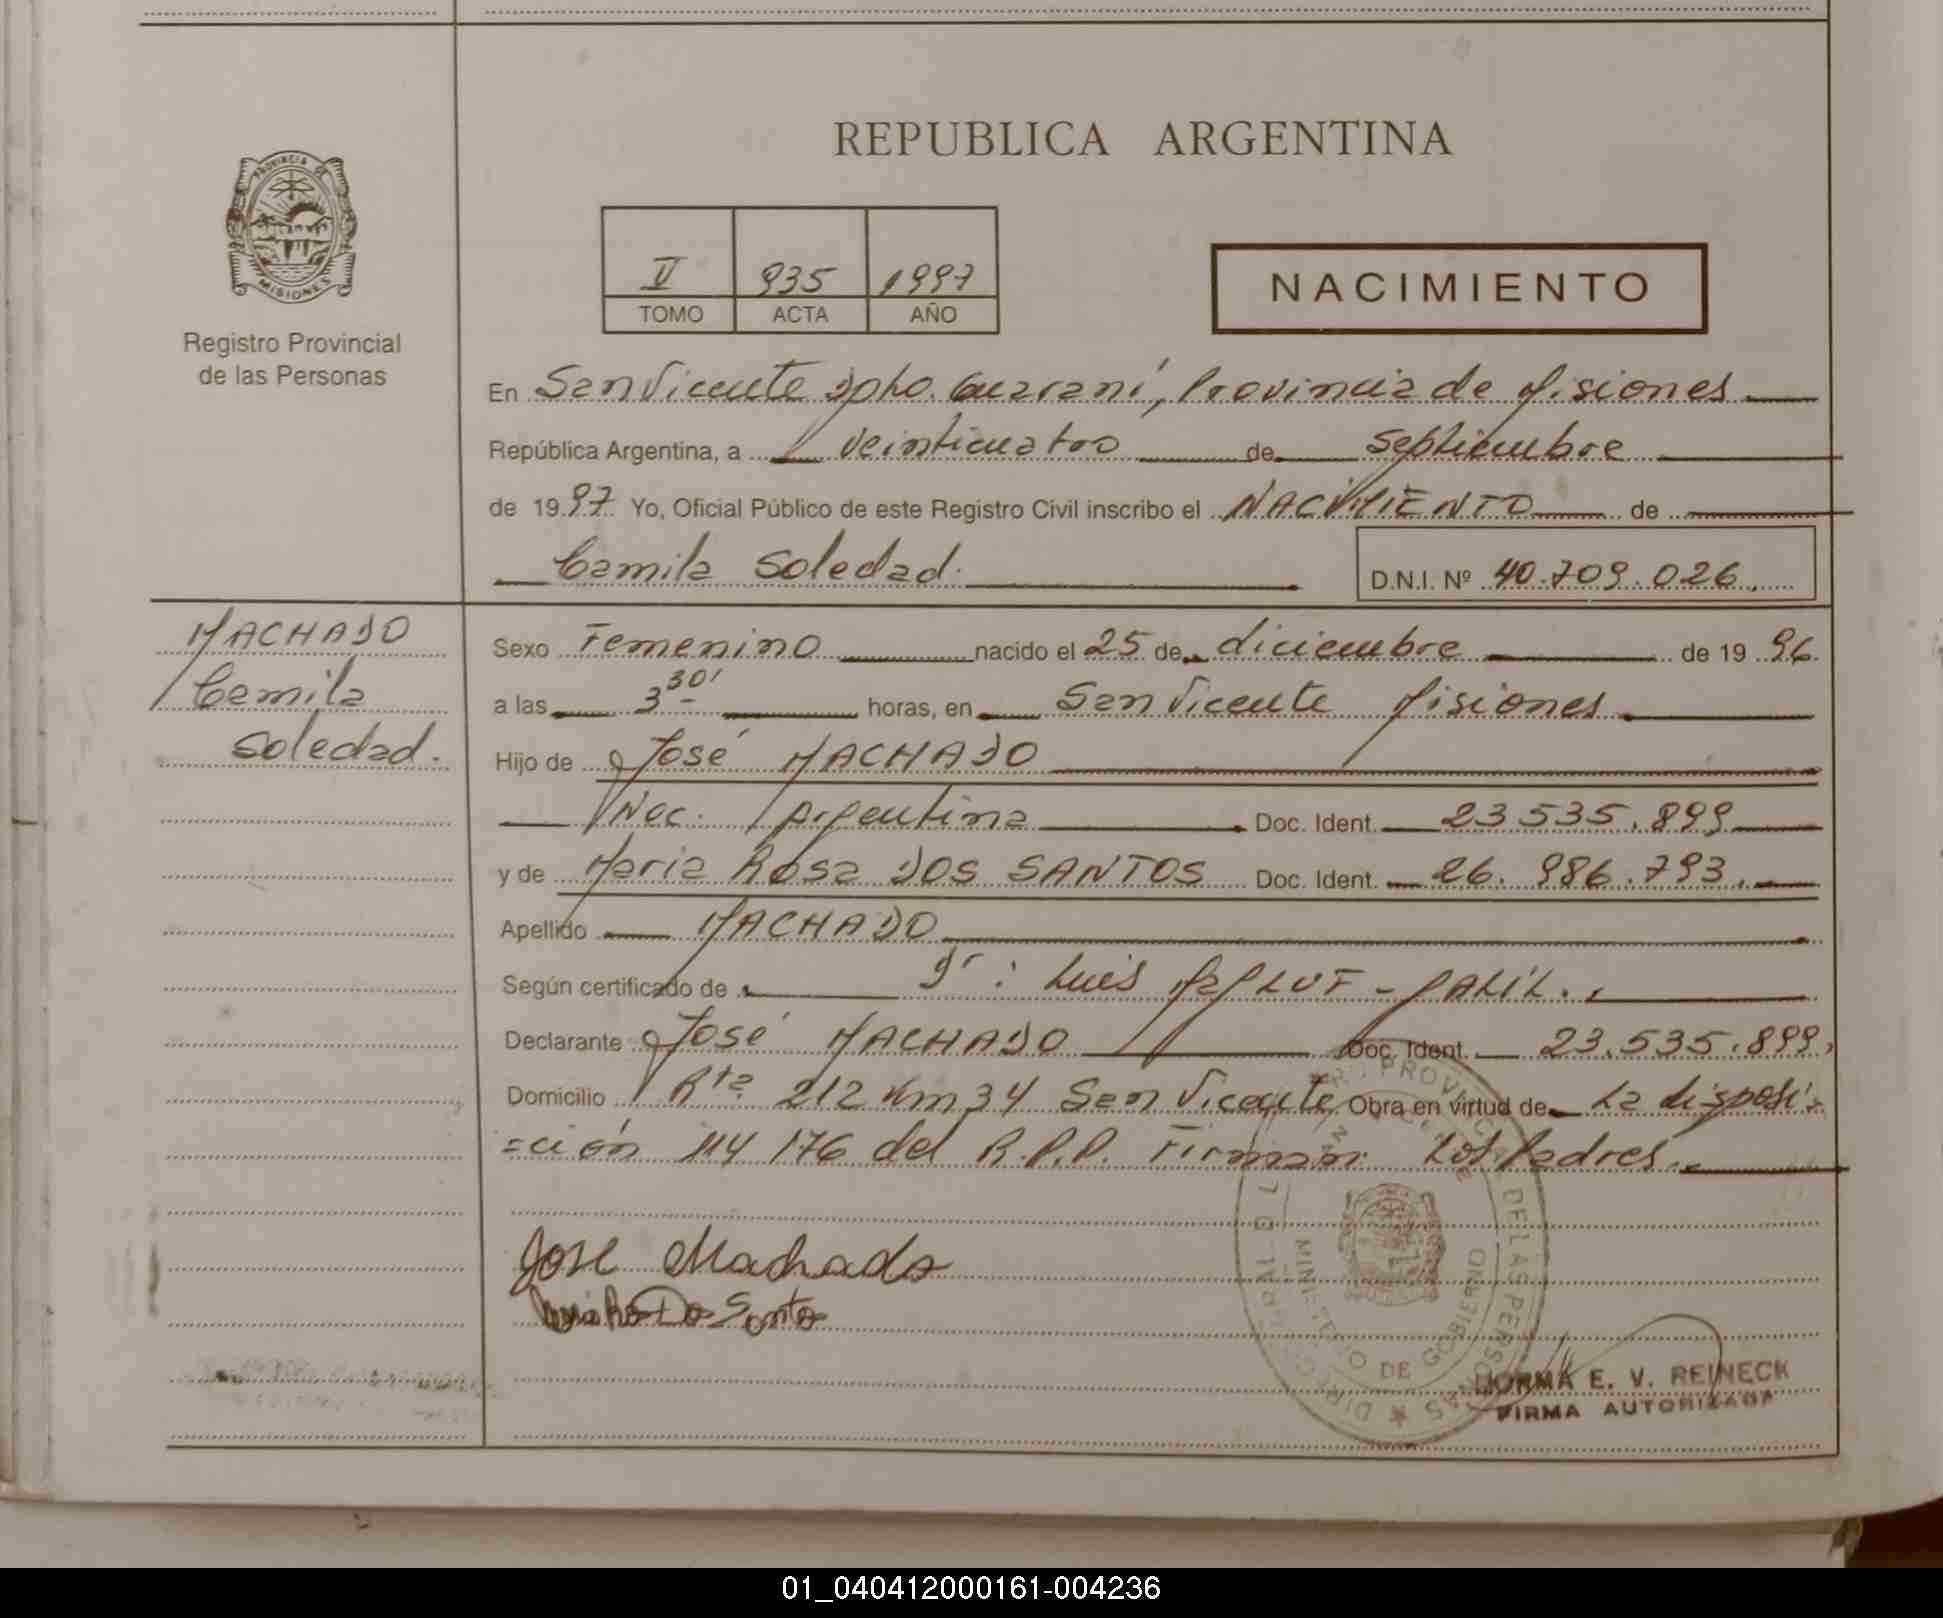 REPUBLICA ARGENTINA
PROVINCIA DE
MISIONES
Registro Provincial
de las Personas
V 935 1997
TOMO ACTA AÑO
NACIMIENTO
En San Vicente Dpto. Guaraní, Provincia de Misiones
República Argentina, a veinticuatro de septiembre
de 1997 Yo, Oficial Público de este Registro Civil inscribo el NACIMIENTO de
Camila Soledad.
D.N.I. Nº 40.709.026.
MACHADO
Camila
Soledad.
Sexo Femenino nacido el 25 de diciembre de 1996.
a las 3 30' horas, en San Vicente Misiones
Hijo de José MACHADO
Nac. Argentina Doc. Ident. 23.535.899
y de Maria Rosa DOS SANTOS Doc. Ident. 26.986.793.
Apellido MACHADO
Según certificado de Dr: Luis
Declarante José MACHADO Doc. Ident. 23.535.899,
Domicilio Rta 212 Km 34 San Vicente Obra en virtud de La disposi=
=ción 114/176 del R.P.P. Firman: Los Padres.
José Machado
Dos Santos
DIRECCION GRAL. DEL R. PROVINCIAL DE LAS PERSONAS
MINISTERIO DE GOBIERNO
NORMA E. V. REINECK
FIRMA AUTORIZADA
01_040412000161-004236